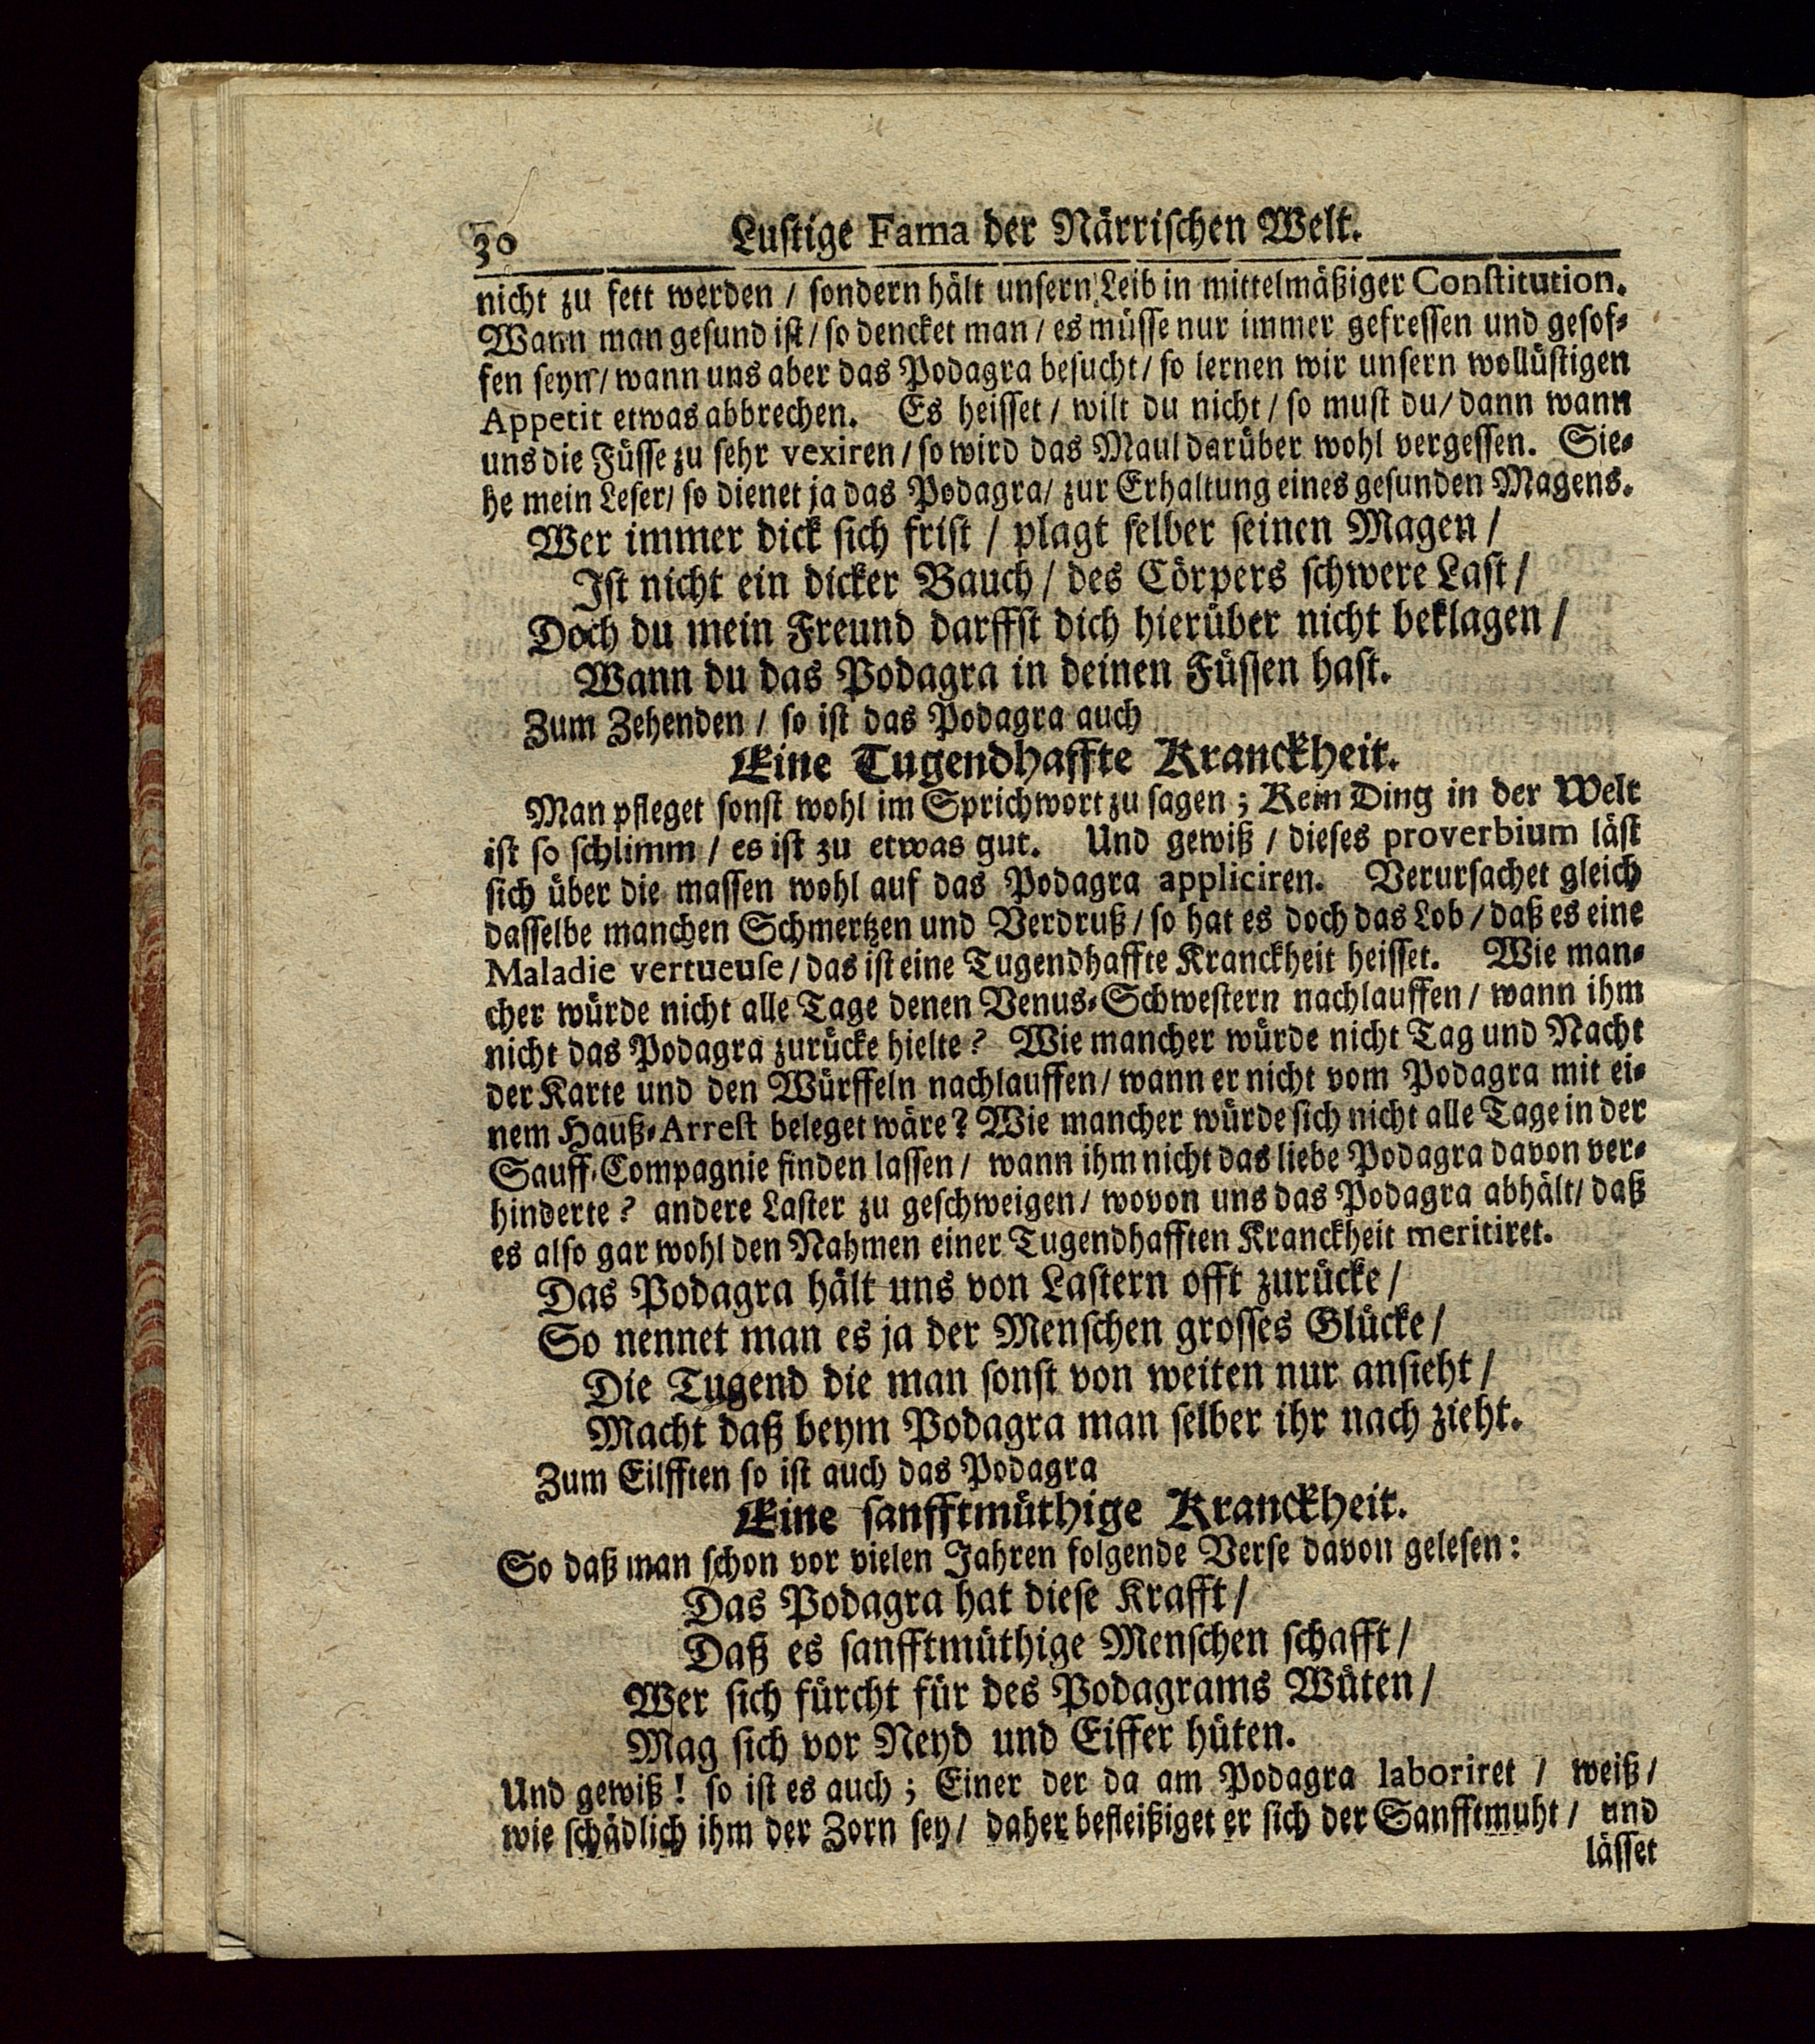 30 Lustige Fama der Närrischen Welt.
nicht zu fett werden / sondern hält unsern Leib in mittelmäßiger Constitution.
Wann man gesund ist / so dencket man / es müsse nur immer gefressen und gesof-
fen seyn / wann uns aber das Podagra besucht / so lernen wir unsern wollüstigen
Appetit etwas abbrechen. Es heisset / wilt du nicht / so must du / dann wann
uns die Füsse zu sehr vexiren / so wird das Maul darüber wohl vergessen. Sie-
he mein Leser / so dienet ja das Podagra / zur Erhaltung eines gesunden Magens.
Wer immer dick sich frist / plagt selber seinen Magen /
Ist nicht ein dicker Bauch / des Cörpers schwere Last /
Doch du mein Freund darffst dich hierüber nicht beklagen /
Wann du das Podagra in deinen Füssen hast.
Zum Zehenden / so ist das Podagra auch
Eine Tugendhaffte Kranckheit.
Man pfleget sonst wohl im Sprichwort zu sagen ; Kein Ding in der Welt
ist so schlimm / es ist zu etwas gut. Und gewiß / dieses proverbium läst
sich über die massen wohl auf das Podagra appliciren. Verursachet gleich
dasselbe manchen Schmertzen und Verdruß / so hat es doch das Lob / daß es eine
Maladie vertueuse / das ist eine Tugendhaffte Kranckheit heisset. Wie man-
cher würde nicht alle Tage denen Venus-Schwestern nachlauffen / wann ihm
nicht das Podagra zurücke hielte? Wie mancher würde nicht Tag und Nacht
der Karte und den Würffeln nachlauffen / wann er nicht vom Podagra mit ei-
nem Hauß-Arrest beleget wäre? Wie mancher würde sich nicht alle Tage in der
Sauff-Compagnie finden lassen / wann ihm nicht das liebe Podagra davon ver-
hinderte? andere Laster zu geschweigen / wovon uns das Podagra abhält / daß
es also gar wohl den Nahmen einer Tugendhafften Kranckheit meritiret.
Das Podagra hält uns von Lastern offt zurücke /
So nennet man es ja der Menschen grosses Glücke /
Die Tugend die man sonst von weiten nur ansieht /
Macht daß beym Podagra man selber ihr nach zieht.
Zum Eilfften so ist auch das Podagra
Eine sanfftmüthige Kranckheit.
So daß man schon vor vielen Jahren folgende Verse davon gelesen:
Das Podagra hat diese Krafft /
Daß es sanfftmüthige Menschen schafft /
Wer sich fürcht für des Podagrams Wüten /
Mag sich vor Neyd und Eiffer hüten.
Und gewiß! so ist es auch ; Einer der da am Podagra laboriret / weiß /
wie schädlich ihm der Zorn sey / daher befleißiget er sich der Sanfftmuht / und
lässet